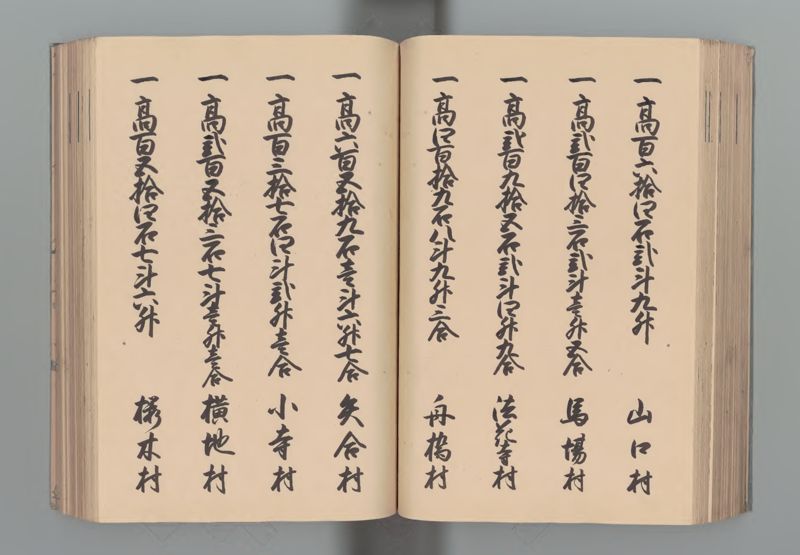 一高百六拾四石弐斗九升 山口村
一高弐百四拾三石弐斗壱升五合 馬場村
一高弐百九拾五石弐斗四升九合 法花寺村
一高四百拾九石八斗九升三合 舟橋村
一高六百五拾九石壱斗六升七合 矢合村
一高百三拾七石四斗弐升壱合 小寺村
一高弐百五拾三石七斗壱升壱合 横地村
一高百五拾四石七斗六升 桜木村